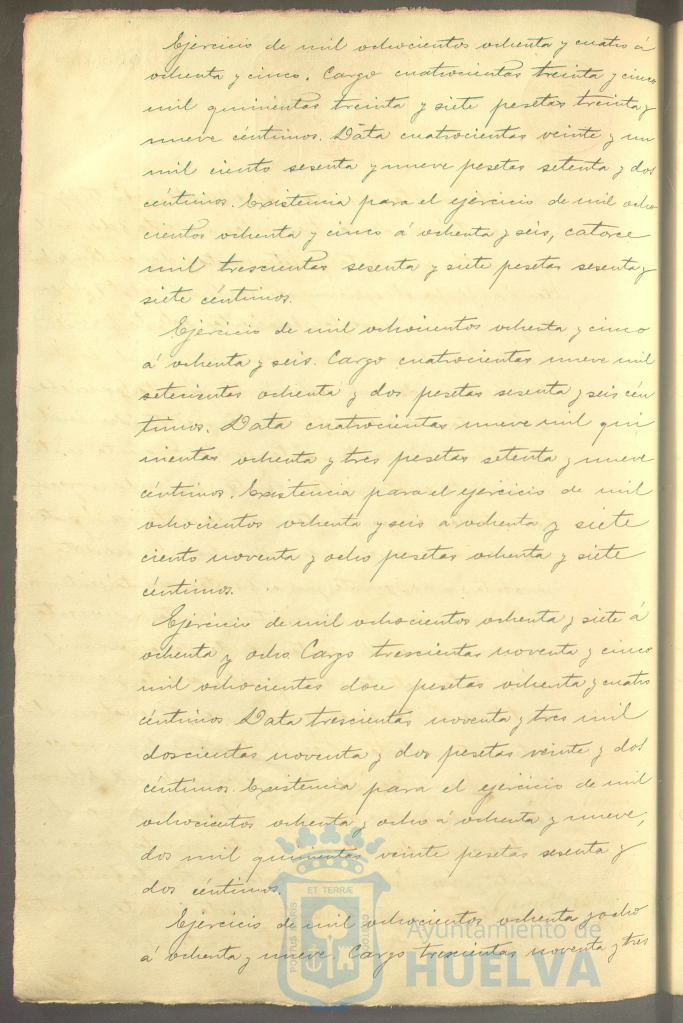 Ejercicio de mil ochocientos ochenta y cuatro á
ochenta y cinco. Cargo cuatrocientas treinta y cinco
mil quinientas treinta y siete pesetas treinta y
nueve céntimos. Data cuatrocientas veinte y un
mil ciento sesenta y nueve pesetas setenta y dos
céntimos. Existencia para el ejercicio de mil ocho
cientos ochenta y cinco á ochenta y seis, catorce
mil trescientas sesenta y siete pesetas sesenta y
siete céntimos.
Ejercicio de mil ochocientos ochenta y cinco
á ochenta y seis. Cargo cuatrocientas nueve mil
setecientas ochenta y dos pesetas sesenta y seis cén
timos. Data cuatrocientas nueve mil qui
nientas ochenta y tres pesetas setenta y nueve
céntimos. Existencia para el ejercicio de mil
ochocientos ochenta y seis a ochenta y siete
ciento noventa y ocho pesetas ochenta y siete
céntimos.
Ejercicio de mil ochocientos ochenta y siete á
ochenta y ocho. Cargo trescientas noventa y cinco
mil ochocientas doce pesetas ochenta y cuatro
céntimos. Data trescientas noventa y tres mil
doscientas noventa y dos pesetas veinte y dos
céntimos. Existencia para el ejercicio de mil
ochocientos ochenta y ocho á ochenta y nueve,
dos mil quinientas veinte pesetas sesenta y
dos céntimos.
Ejercicio de mil ochocientos ochenta y ocho
á ochenta y nueve. Cargo trescientas noventa y tres
PORTUS MARIS ET TERRÆ CUSTODIA
Ayuntamiento de
HUELVA